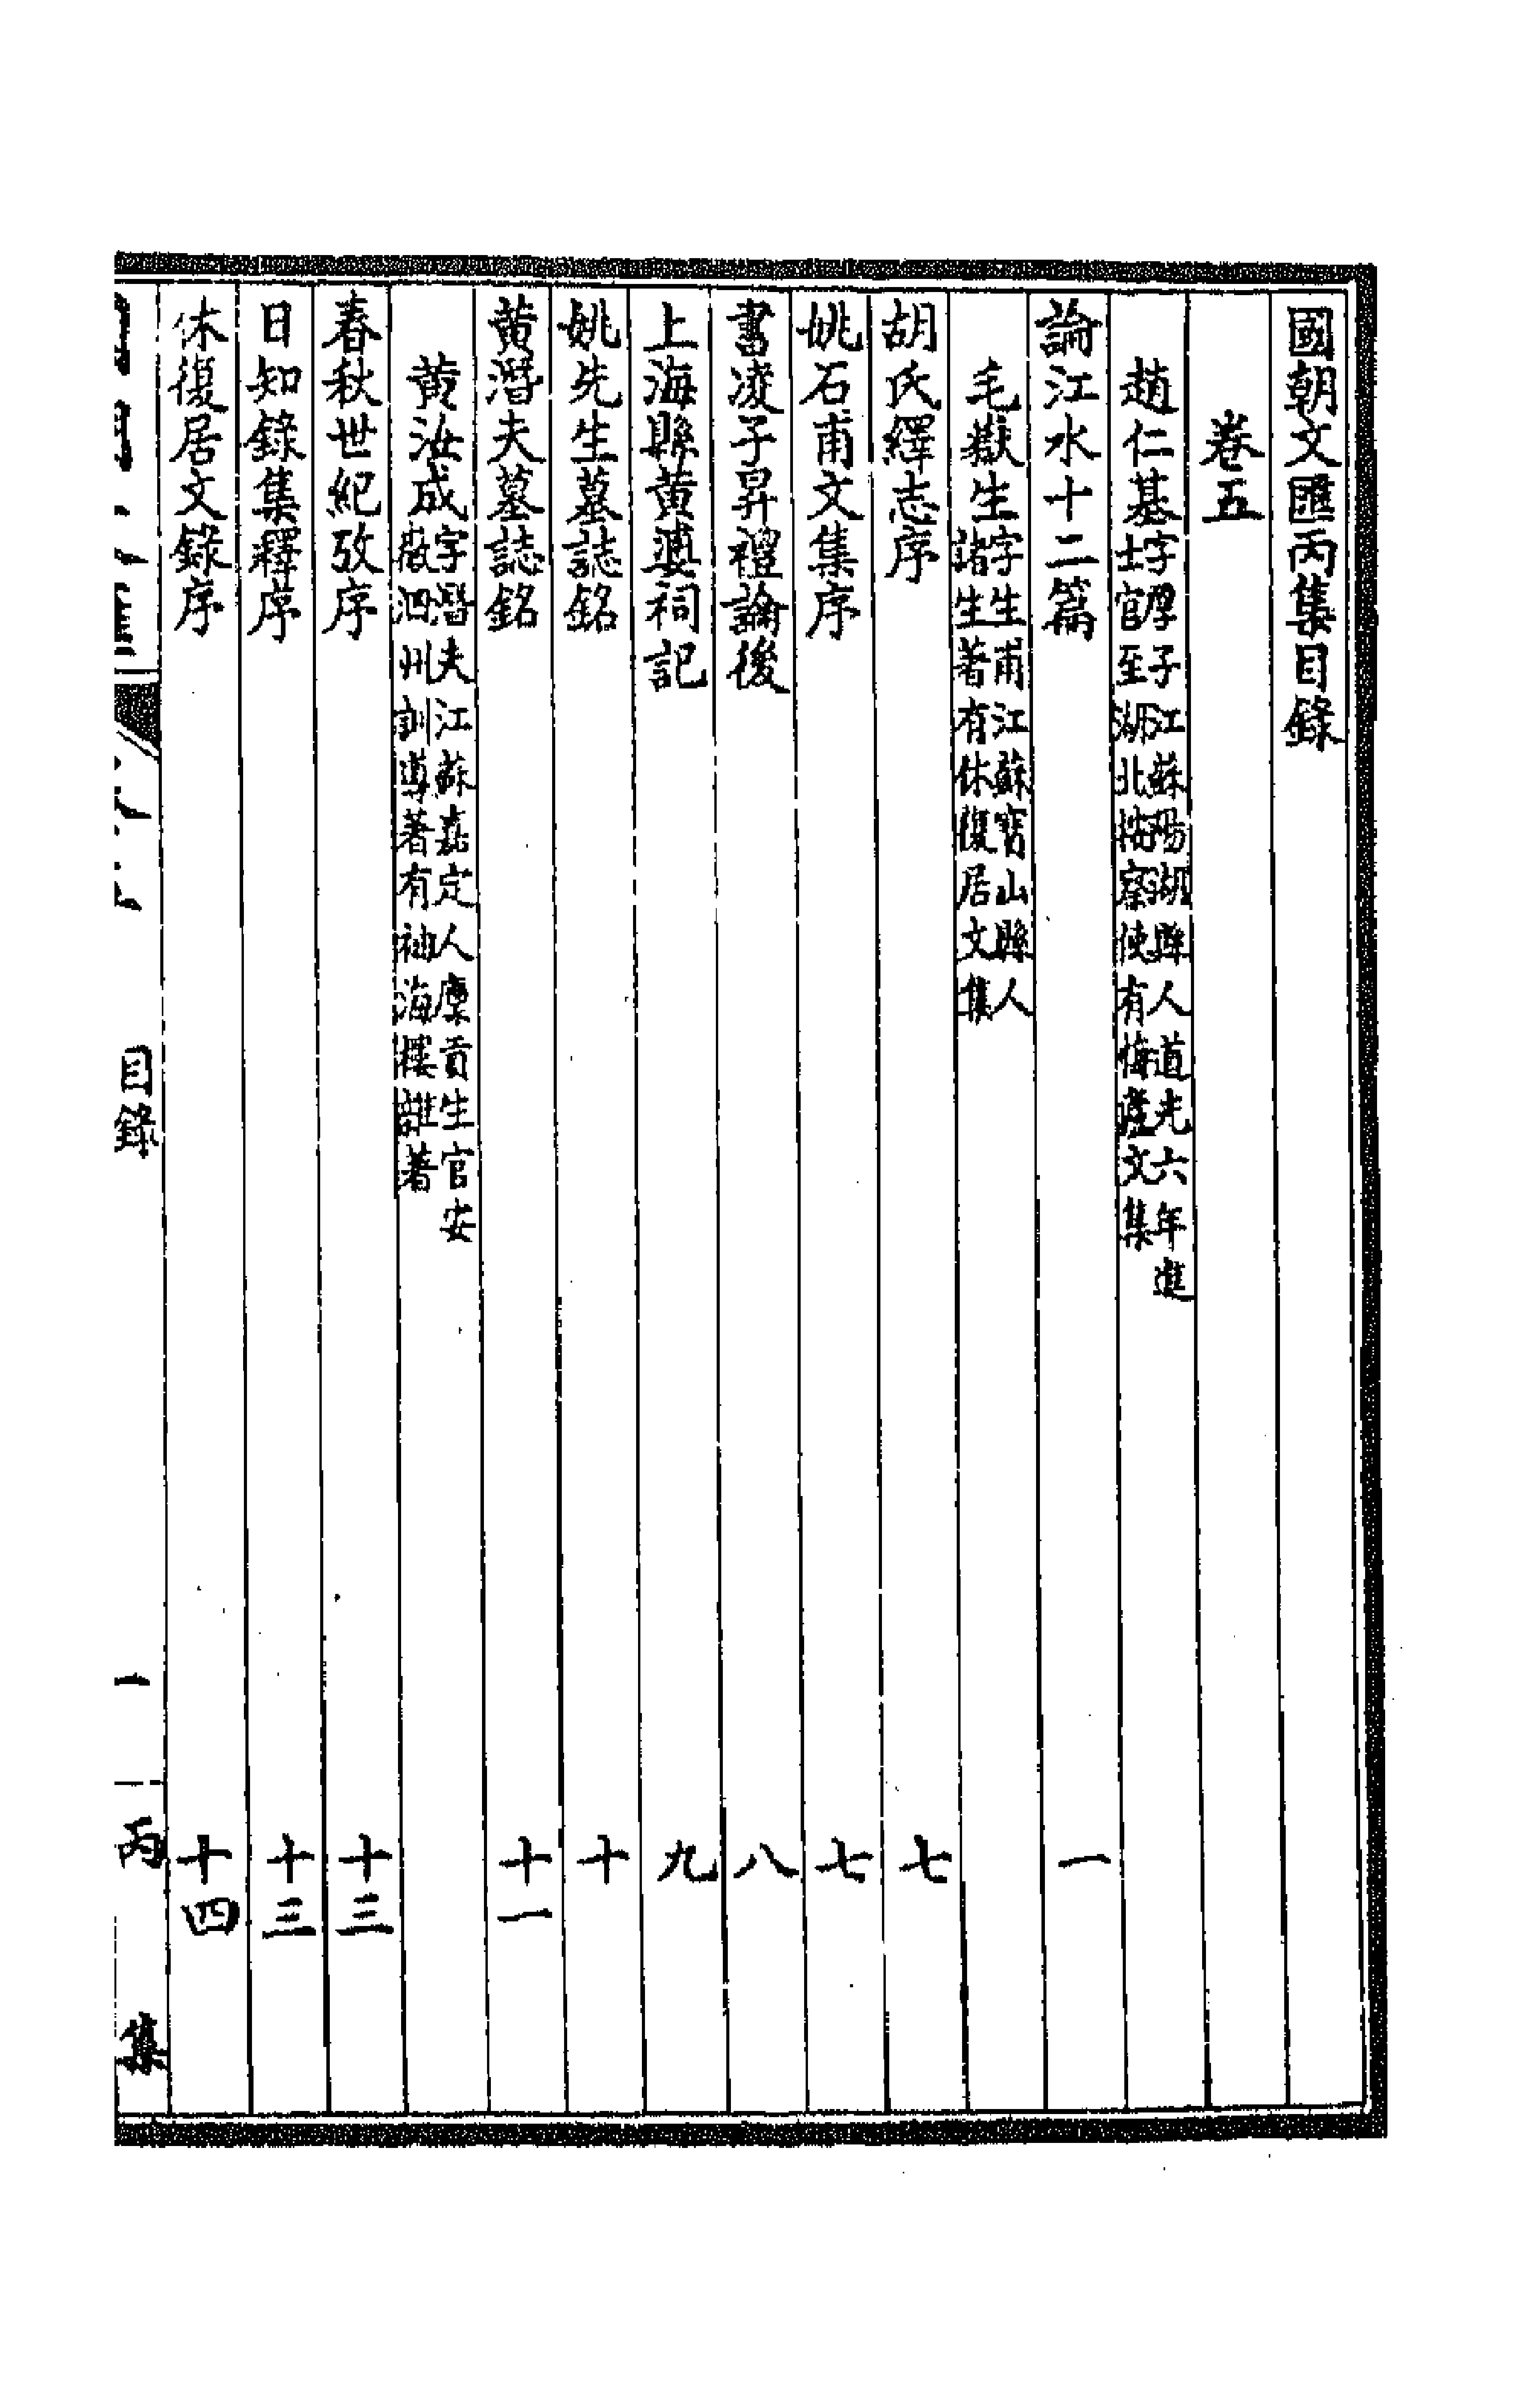 國朝文匯丙集目錄
卷五
趙仁基字厚子江蘇陽湖縣人道光六年進
士官至湖北按察使有悔廬文集
論江水十二篇 一
毛嶽生字生甫江蘇寶山縣人
諸生著有休復居文集
胡氏繹志序 七
姚石甫文集序 七
書凌子昇禮論後 八
上海縣黃婆祠記 九
姚先生墓誌銘 十
黃潛夫墓誌銘 十一
黃汝成字潛夫江蘇嘉定人廩貢生官安
徽泗州訓導著有袖海樓雜著
春秋世紀攷序 十三
日知錄集釋序 十三
休復居文錄序 十四
目錄 一 丙集